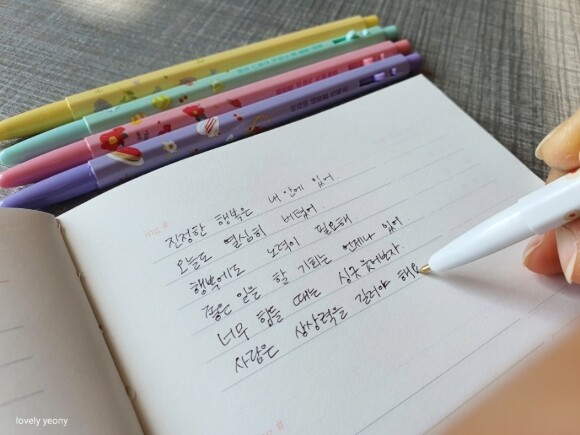 진정한 행복은 내 안에 있어.
오늘도 열심히 버텼어.
행복에도 노력이 필요해
좋은 일을 할 기회는 언제나 있어.
너무 힘들 때는 싱긋 웃어보자
사람은 상상력을 길러야 해요
lovely yeony